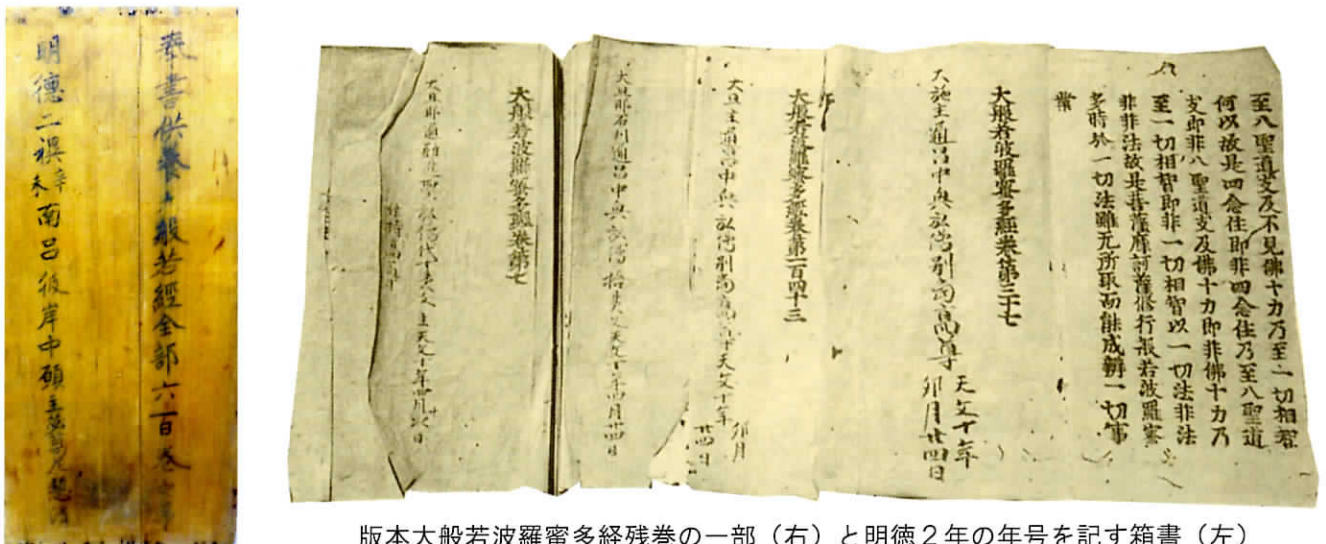 奉書供養大般若經全部六百巻
明徳二禩辛未南呂彼岸中願主
至八聖道支及不見佛十力乃至一切相智
何以故是四念住即非四念住乃至八聖道
支即非八聖道支及佛十力即非佛十力乃
至一切相智即非一切相智以一切法非法
非非法故是菩薩摩訶薩修行般若波羅蜜
多時於一切法雖无所取而能成辦一切事
業
大般若波羅蜜多經巻第三十七
大施主通呂中興
天文十年
卯月廿四日
大般若波羅蜜多經巻第一百四十三
大旦主通呂中興 天文十年
卯月
廿四日
大旦那石川通呂中興 天文十年卯月廿四日
大般若波羅蜜多經巻第七
大旦那通 天文十年
版本大般若波羅蜜多経残巻の一部（右）と明徳２年の年号を記す箱書（左）